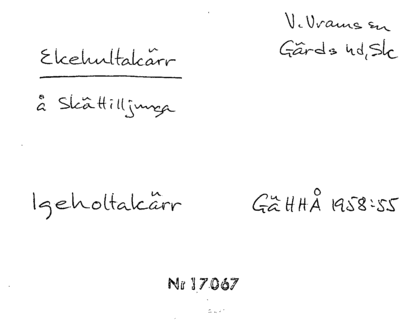 Ekehultakärr
V. Vrams sn
Gärds hd, Sk
å Skättilljunga
Igeholtakärr
GäHHÅ 1958:55
Nr 17067